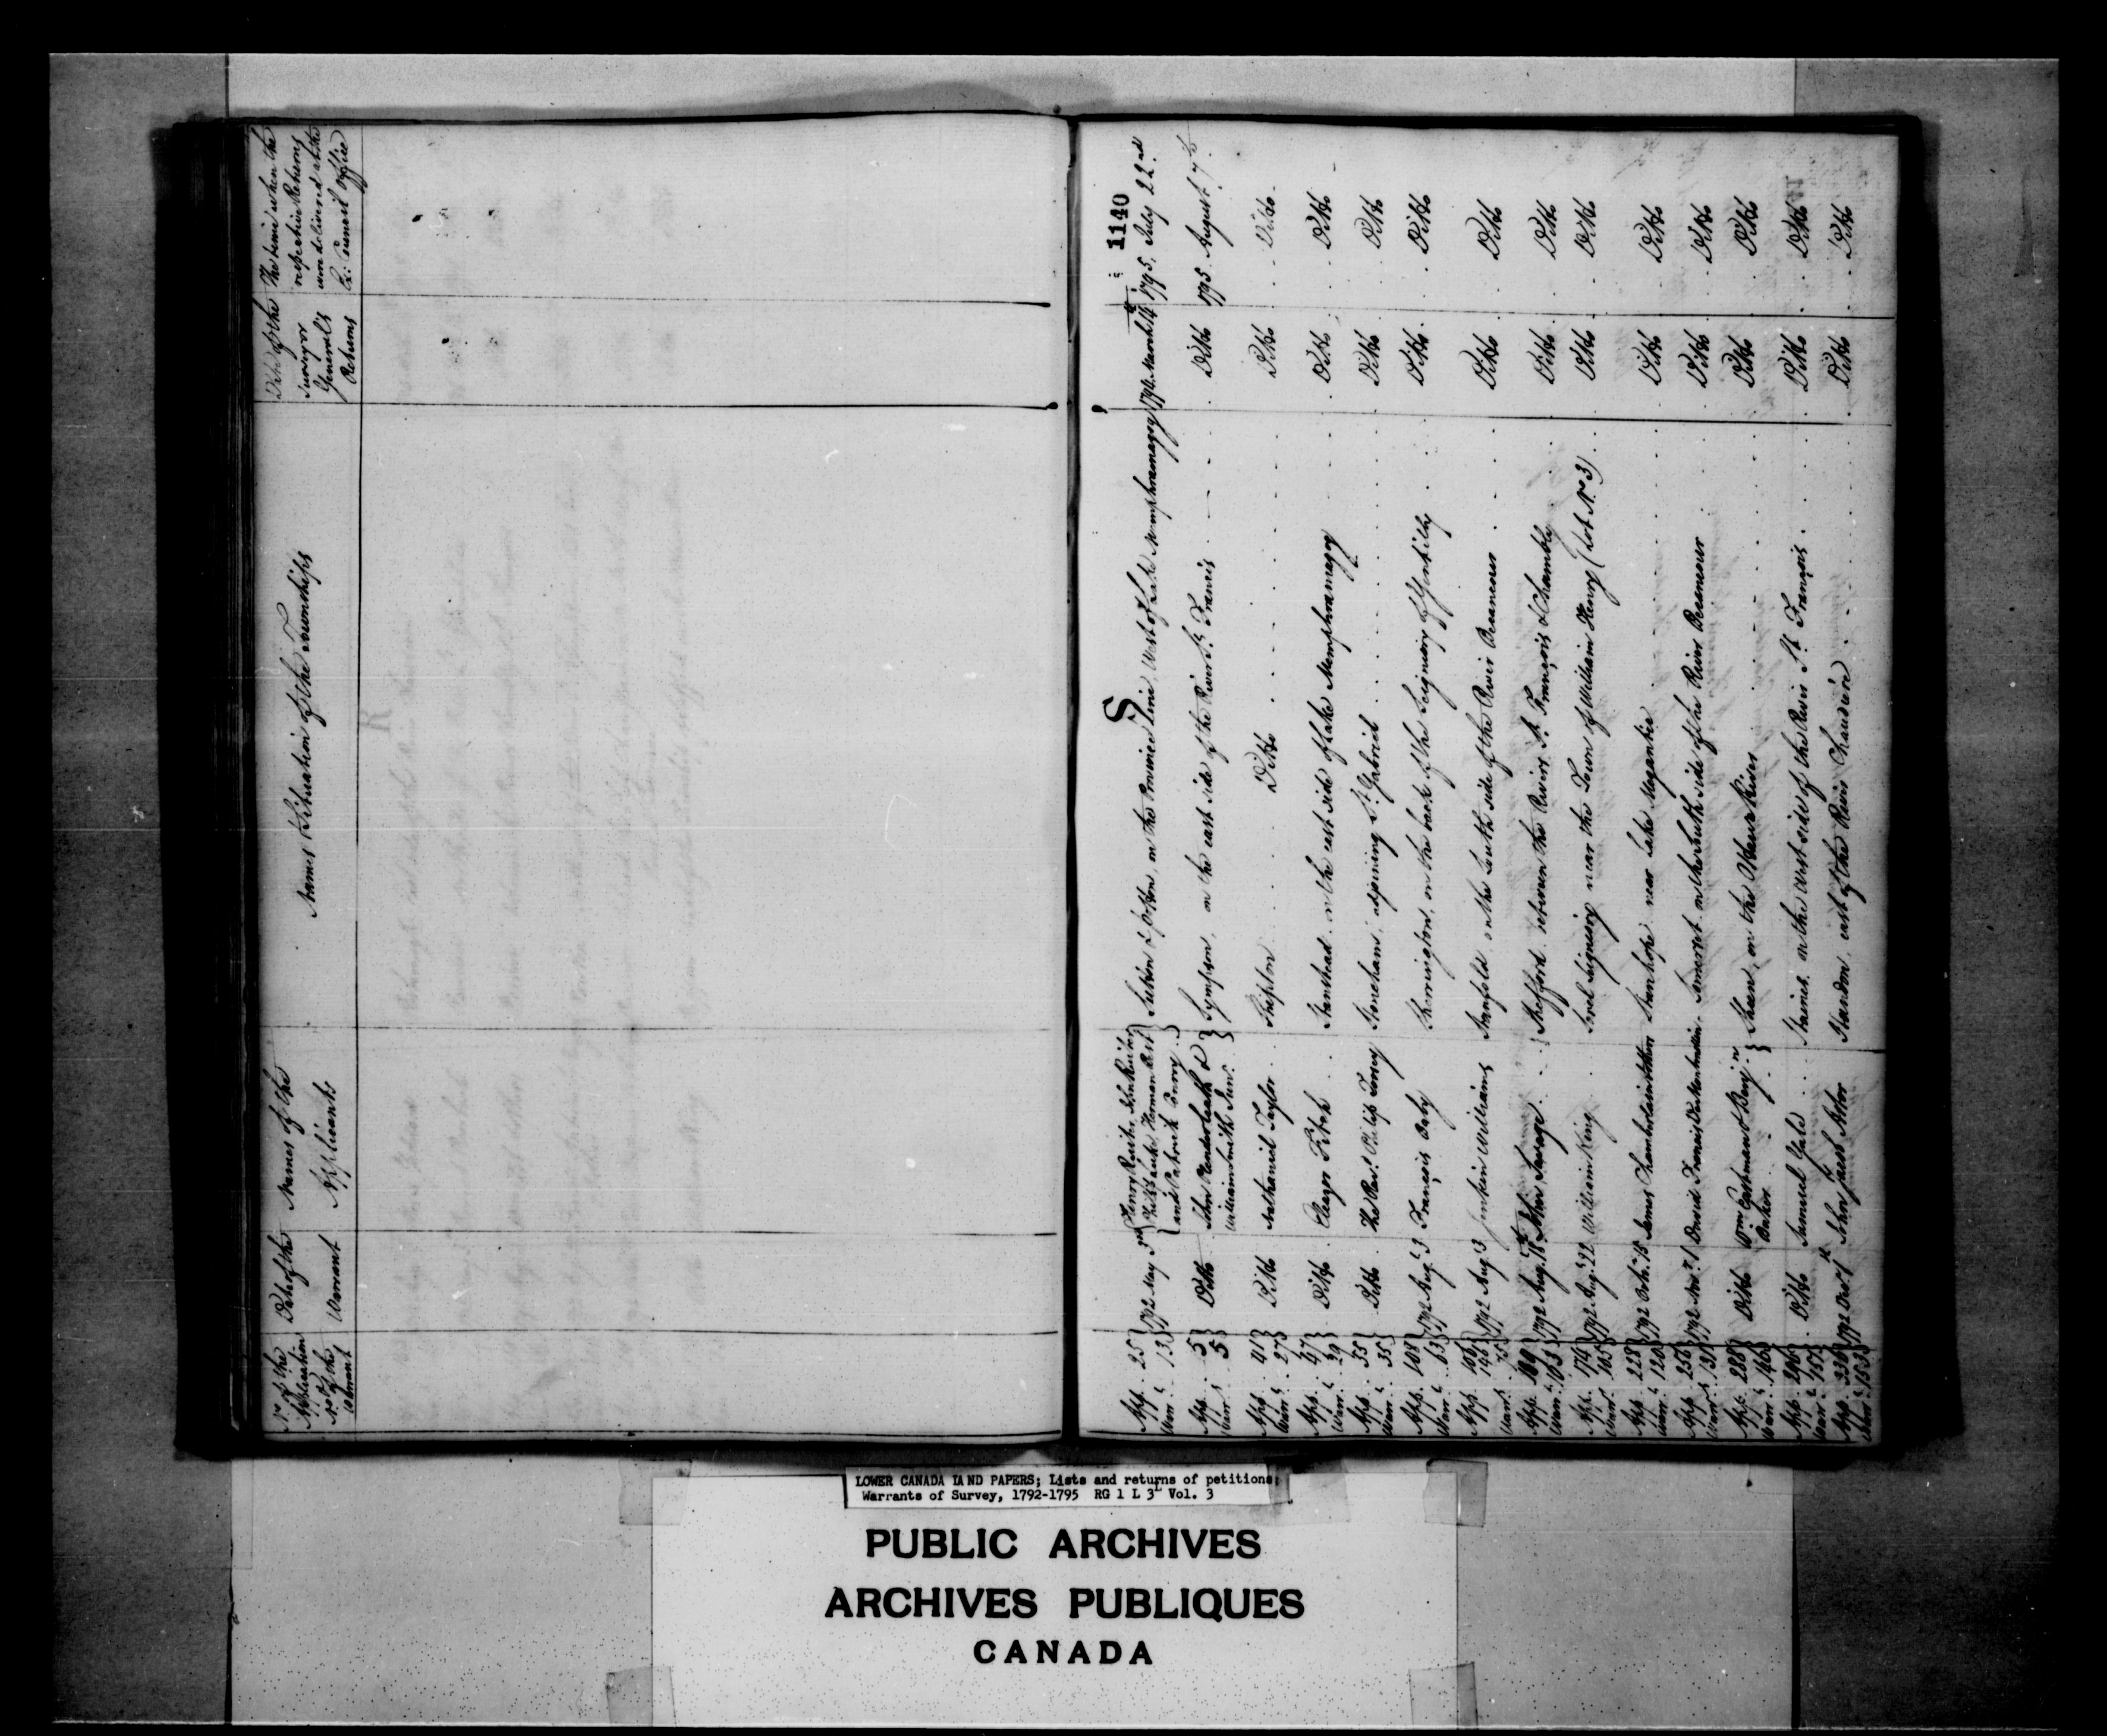 No of the Application & No of the Warrant
Date of the Warrant
Names of the Applicants
Names & Situation of the Townships
Date of the Surveyor General's Returns
The time when the respective Returns were delivered at the Ex: Council Office
1140
S
App. 25 Warr. 13 1792 May 3rd Henry Ruiter, John Ruiter, Philip Luke, Hermon Best and Patrick Conroy Sutton & Potton, on the Province Line, West of Lake Memphramagog 1794 March 14 1795. July 22nd
App. 5 Warr. 5 Ditto John Vanderbach & William Smith Senr. Sympson, on the east side of the River St. Francis Ditto 1795. August 7th
App. 41 Warr. 27 Ditto Nathaniel Taylor Shipton Ditto Ditto Ditto
App. 47 Warr. 29 Ditto Eleazer Fitch Stanstead on the east side of Lake Memphramagog Ditto Ditto
App. 55 Warr. 35 Ditto The Revd. Philip Toosey Stoneham, adjoining St. Gabriel Ditto Ditto
App. 108 Warr. 63 1792 Aug. 3 François Baby Sherrington, on the back of the Seigniory of Gentilly Ditto Ditto
App. 146 Warr. 75 1792 Aug. 3 Jenkin Williams Stanfold on the South side of the River Becancour Ditto Ditto
App. 169 Warr. 103 1792 Aug. 18th John Savage Shefford between the Rivers St. François & Chambly Ditto Ditto
App. 174 Warr. 105 1792 Aug. 22 William King Sorel Seigniory near the Town of William Henry (Lot No 3) Ditto Ditto
App. 228 Warr. 120 1792 Octr. 15 James Chamberlain Stanhope near Lake Megantic Ditto Ditto
App. 256 Warr. 131 1792 Novr. 1 David Francis Somerset on the South side of the River Becancour Ditto Ditto
App. 288 Warr. 146 Ditto Wm. Eastman & Benjn. Baker Sheen, on the Ottawa River Ditto Ditto
App. 296 Warr. 157 Ditto Samuel Gale Staines on the West side of the River St. François Ditto Ditto
App. 330 Warr. 153 1792 Decr. 1st John Jacob Astor Standon, east of the River Chaudiere Ditto Ditto
LOWER CANADA LAND PAPERS; Lists and returns of petitions;
Warrants of Survey, 1792-1795 RG 1 L 3L Vol. 3
PUBLIC ARCHIVES
ARCHIVES PUBLIQUES
CANADA